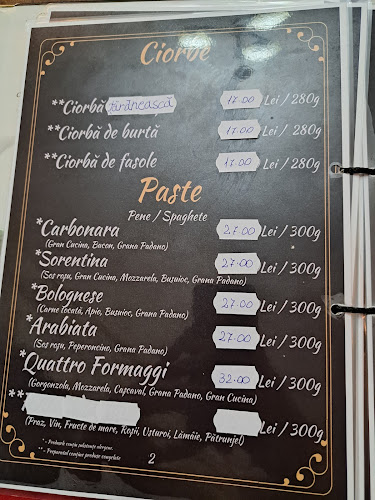 Ciorbe
**Ciorbă țărănească 17.00 Lei / 280g
**Ciorbă de burtă 17.00 Lei / 280g
**Ciorbă de fasole 17.00 Lei / 280g
Paste
Pene / Spaghete
*Carbonara 27.00 Lei / 300g
(Gran Cucina, Bacon, Grana Padano)
*Sorentina 27.00 Lei / 300g
(Sos roșu, Gran Cucina, Mozzarela, Busuioc, Grana Padano)
*Bolognese 27.00 Lei / 300g
(Carne tocată, Apio, Busuioc, Grana Padano)
*Arabiata 27.00 Lei / 300g
(Sos roșu, Peperoncino, Grana Padano)
*Quattro Formaggi 32.00 Lei / 300g
(Gorgonzola, Mozzarela, Cașcaval, Grana Padano, Gran Cucina)
** Lei / 300g
(Fraz, Vin, Fructe de mare, Roșii, Usturoi, Lămâie, Pătrunjel)
* - Produsele conțin substanțe alergene.
** - Preparatul conține produse congelate
2